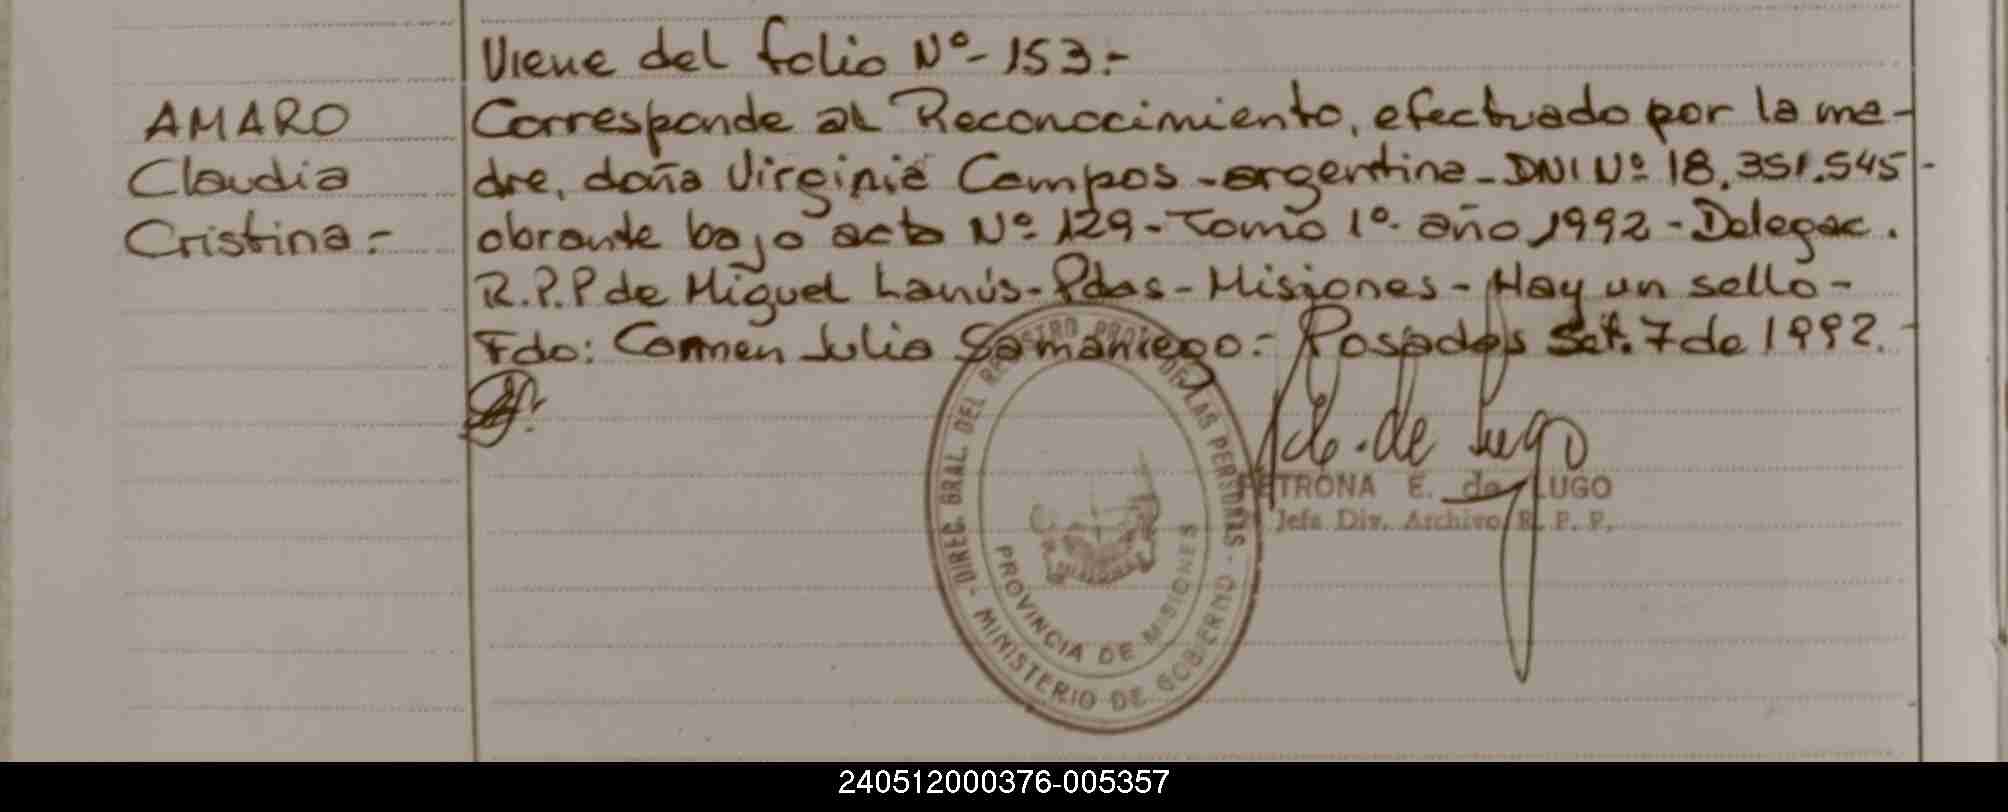 Viene del folio Nº- 153.-
AMARO
Claudia
Cristina.-
Corresponde al Reconocimiento, efectuado por la ma-
dre, doña Virginia Campos - argentina - DNI Nº 18.351.545 -
obrante bajo acta Nº 129 - Tomo 1º- año 1992 - Delegac.
R.P.P de Miguel Lanús - Pdas - Misiones - Hay un sello -
Fdo: Carmen Julia Samaniego.- Posadas Set. 7 de 1992.-
de Lugo
PETRONA E. de LUGO
Jefa Div. Archivo R. P. P.
DIREC. GRAL. DEL REGISTRO PROV. DE LAS PERSONAS - MINISTERIO DE GOBIERNO -
PROVINCIA DE MISIONES
240512000376-005357